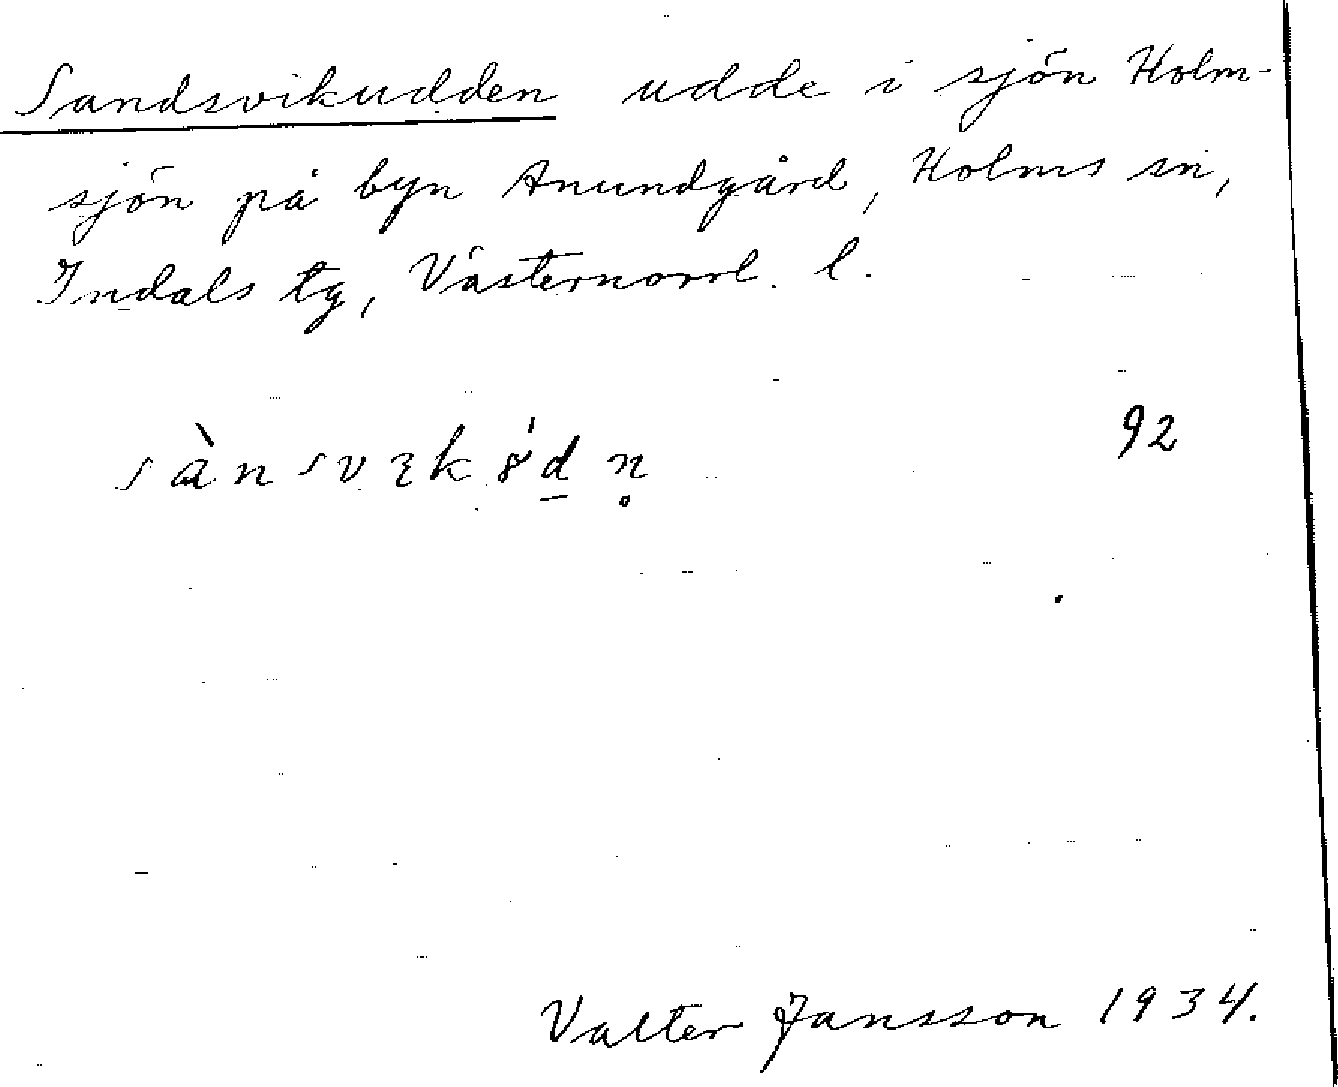 Sandsvikudden udde i sjön Holm-
sjön på byn Anundgård, Holms sn,
Indals tg, Västernorrl. l.
sànsvıkȣ́d̲n̥ 92
Valter Jansson 1934.